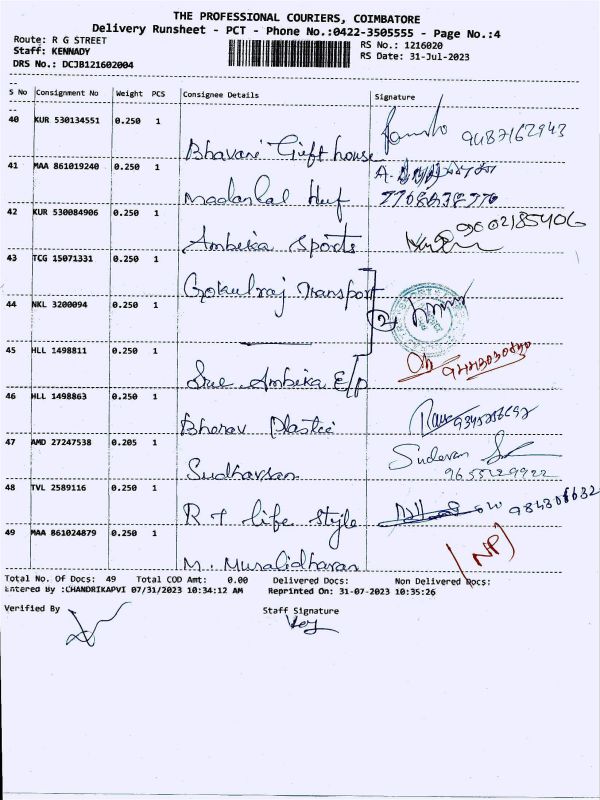 THE PROFESSIONAL COURIERS, COIMBATORE
Delivery Runsheet - PCT - Phone No.:0422-3505555 - Page No.:4
Route: R G STREET
RS No.: 1216020
Staff: KENNADY
RS Date: 31-Jul-2023
DRS No.: DCJB121602004
S No Consignment No Weight PCS Consignee Details Signature
40 KUR 530134551 0.250 1 Bhavani Gift house
41 MAA 861019240 0.250 1 Madanlal Huf
42 KUR 530084906 0.250 1 Ambika Sports 9002185406
43 TCG 15071331 0.250 1 Gokulraj Transport
44 NKL 3200094 0.250 1 2
45 HLL 1498811 0.250 1 Sree Ambika E/p
46 HLL 1498863 0.250 1 Bhorav Plastic
47 AMD 27247538 0.205 1 Sudharsan Sudevan 9655229922
48 TVL 2589116 0.250 1 R T life style
49 MAA 861024879 0.250 1 M. Muralidharan NP
Total No. Of Docs: 49 Total COD Amt: 0.00 Delivered Docs: Non Delivered Docs:
Entered By :CHANDRIKAPVI 07/31/2023 10:34:12 AM Reprinted On: 31-07-2023 10:35:26
Verified By Staff Signature